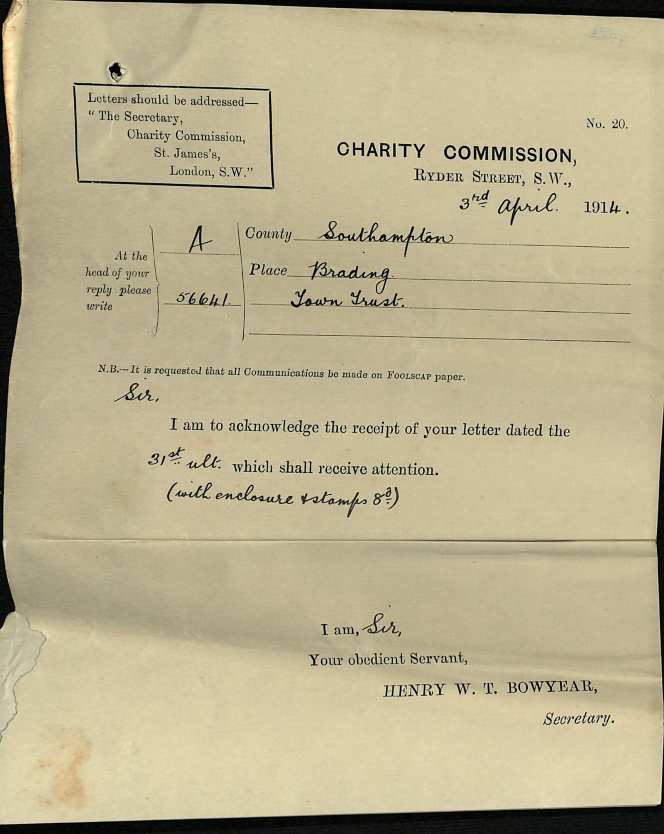 Letters should be addressed—
" The Secretary,
Charity Commission,
St. James's,
London, S.W."
No. 20.
CHARITY COMMISSION,
RYDER STREET, S.W.,
3rd April. 1914.
At the
head of your
reply please
write
A
56641.
County Southampton
Place Brading.
Town Trust.
N.B.—It is requested that all Communications be made on FOOLSCAP paper.
Sir,
I am to acknowledge the receipt of your letter dated the
31st ult. which shall receive attention.
(with enclosure & stamps 8d)
I am, Sir,
Your obedient Servant,
HENRY W. T. BOWYEAR,
Secretary.